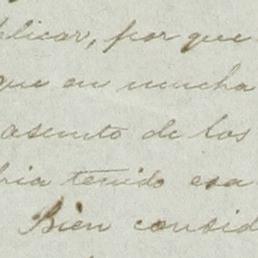 plicar, por que
que en mucha
asunto de los
bria tenido esa
Bien consid